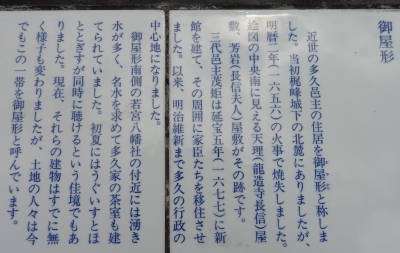 御屋形
近世の多久邑主の住居を御屋形と称しま
した。当初梶峰城下の北麓にありましたが、
明暦二年(一六五六)の火事で焼失しました。
絵図の中央南に見える天理(龍造寺長信)屋
敷、芳岩(長信夫人)屋敷がその跡です。
三代邑主茂矩は延宝五年(一六七七)に新
館を建て、その周囲に家臣たちを移住させ
ました。以来、明治維新まで多久の行政の
中心地になりました。
御屋形南側の若宮八幡社の付近には湧き
水が多く、名水を求めて多久家の茶室も建
てられていました。初夏にはうぐいすとほ
ととぎすが同時に聴けるという佳境でもあ
りました。現在、それらの建物はすでに無
く様子も変わりましたが、土地の人々は今
でもこの一帯を御屋形と呼んでいます。